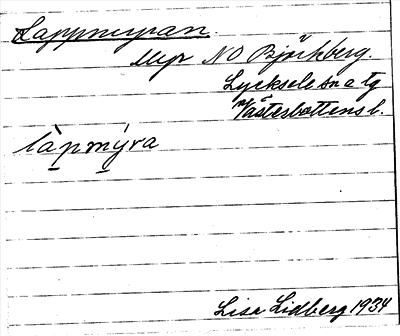 Lappmyran.
Myr NO Björkberg.
Lycksele sn o tg
Västerbottens l.
làpmýra
Lisa Lidberg 1934